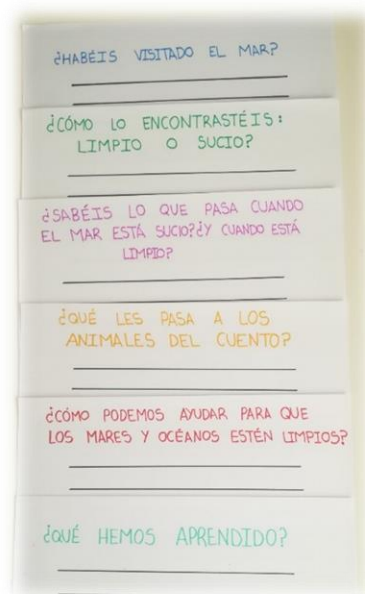 ¿HABÉIS VISITADO EL MAR?
¿CÓMO LO ENCONTRASTÉIS:
LIMPIO O SUCIO?
¿SABÉIS LO QUE PASA CUANDO
EL MAR ESTÁ SUCIO?¿Y CUANDO ESTÁ
LIMPIO?
¿QUÉ LES PASA A LOS
ANIMALES DEL CUENTO?
¿CÓMO PODEMOS AYUDAR PARA QUE
LOS MARES Y OCÉANOS ESTÉN LIMPIOS?
¿QUÉ HEMOS APRENDIDO?